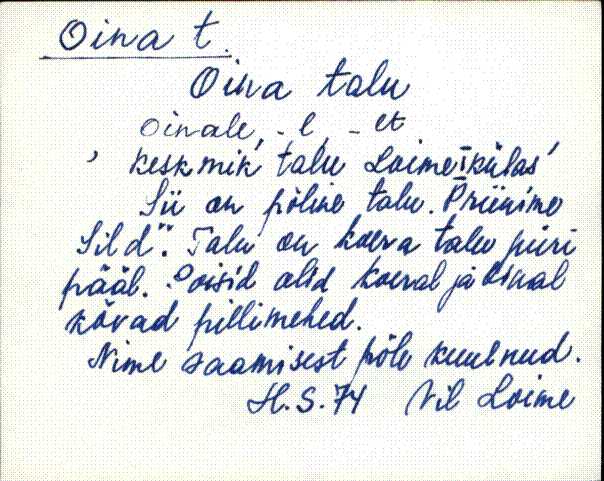 Oina t.
Oina talu
Oinale, -l, -lt
'keskmik talu Loime külas'
Sii on põline talu. Priinime
Sild". Talu on koera talu piiri
pääl. Poisid olid koeral ja Oinal
kõvad pillimehed.
Nime saamisest põle kuulnud.
H.S. 74 Vil Loime